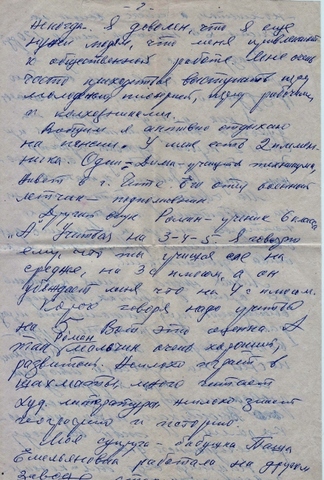 - 2 -
некогда. Я доволен, что я еще
нужен людям, что меня привлекают
к общественной работе. Мне очень
часто приходится выступать перед
молодежью, пионерией, перед рабочими,
и колхозниками.
Вообщем я активно отдыхаю
на пенсии. У меня есть 2 племян-
ника. Один - Дима - учится техникуме,
живет в г. Чите. Его отец военный
летчик - подполковник.
Другой внук Роман - ученик 6 класса
А учится на 3-4-5. Я говорю
ему, что ты учишься еле на
средне, на 3 с плюсом, а он
убеждает меня что на 4 с плюсом.
Короче говоря надо учиться
на 5. Вот эта оценка. А
так Роман мальчик очень хороший,
развитой. Неплохо играет в
шахматы, много читает
худ. литературы неплохо знает
географию и историю.
Моя супруга - бабушка Паша
Емельяновна работала на другом
заводе